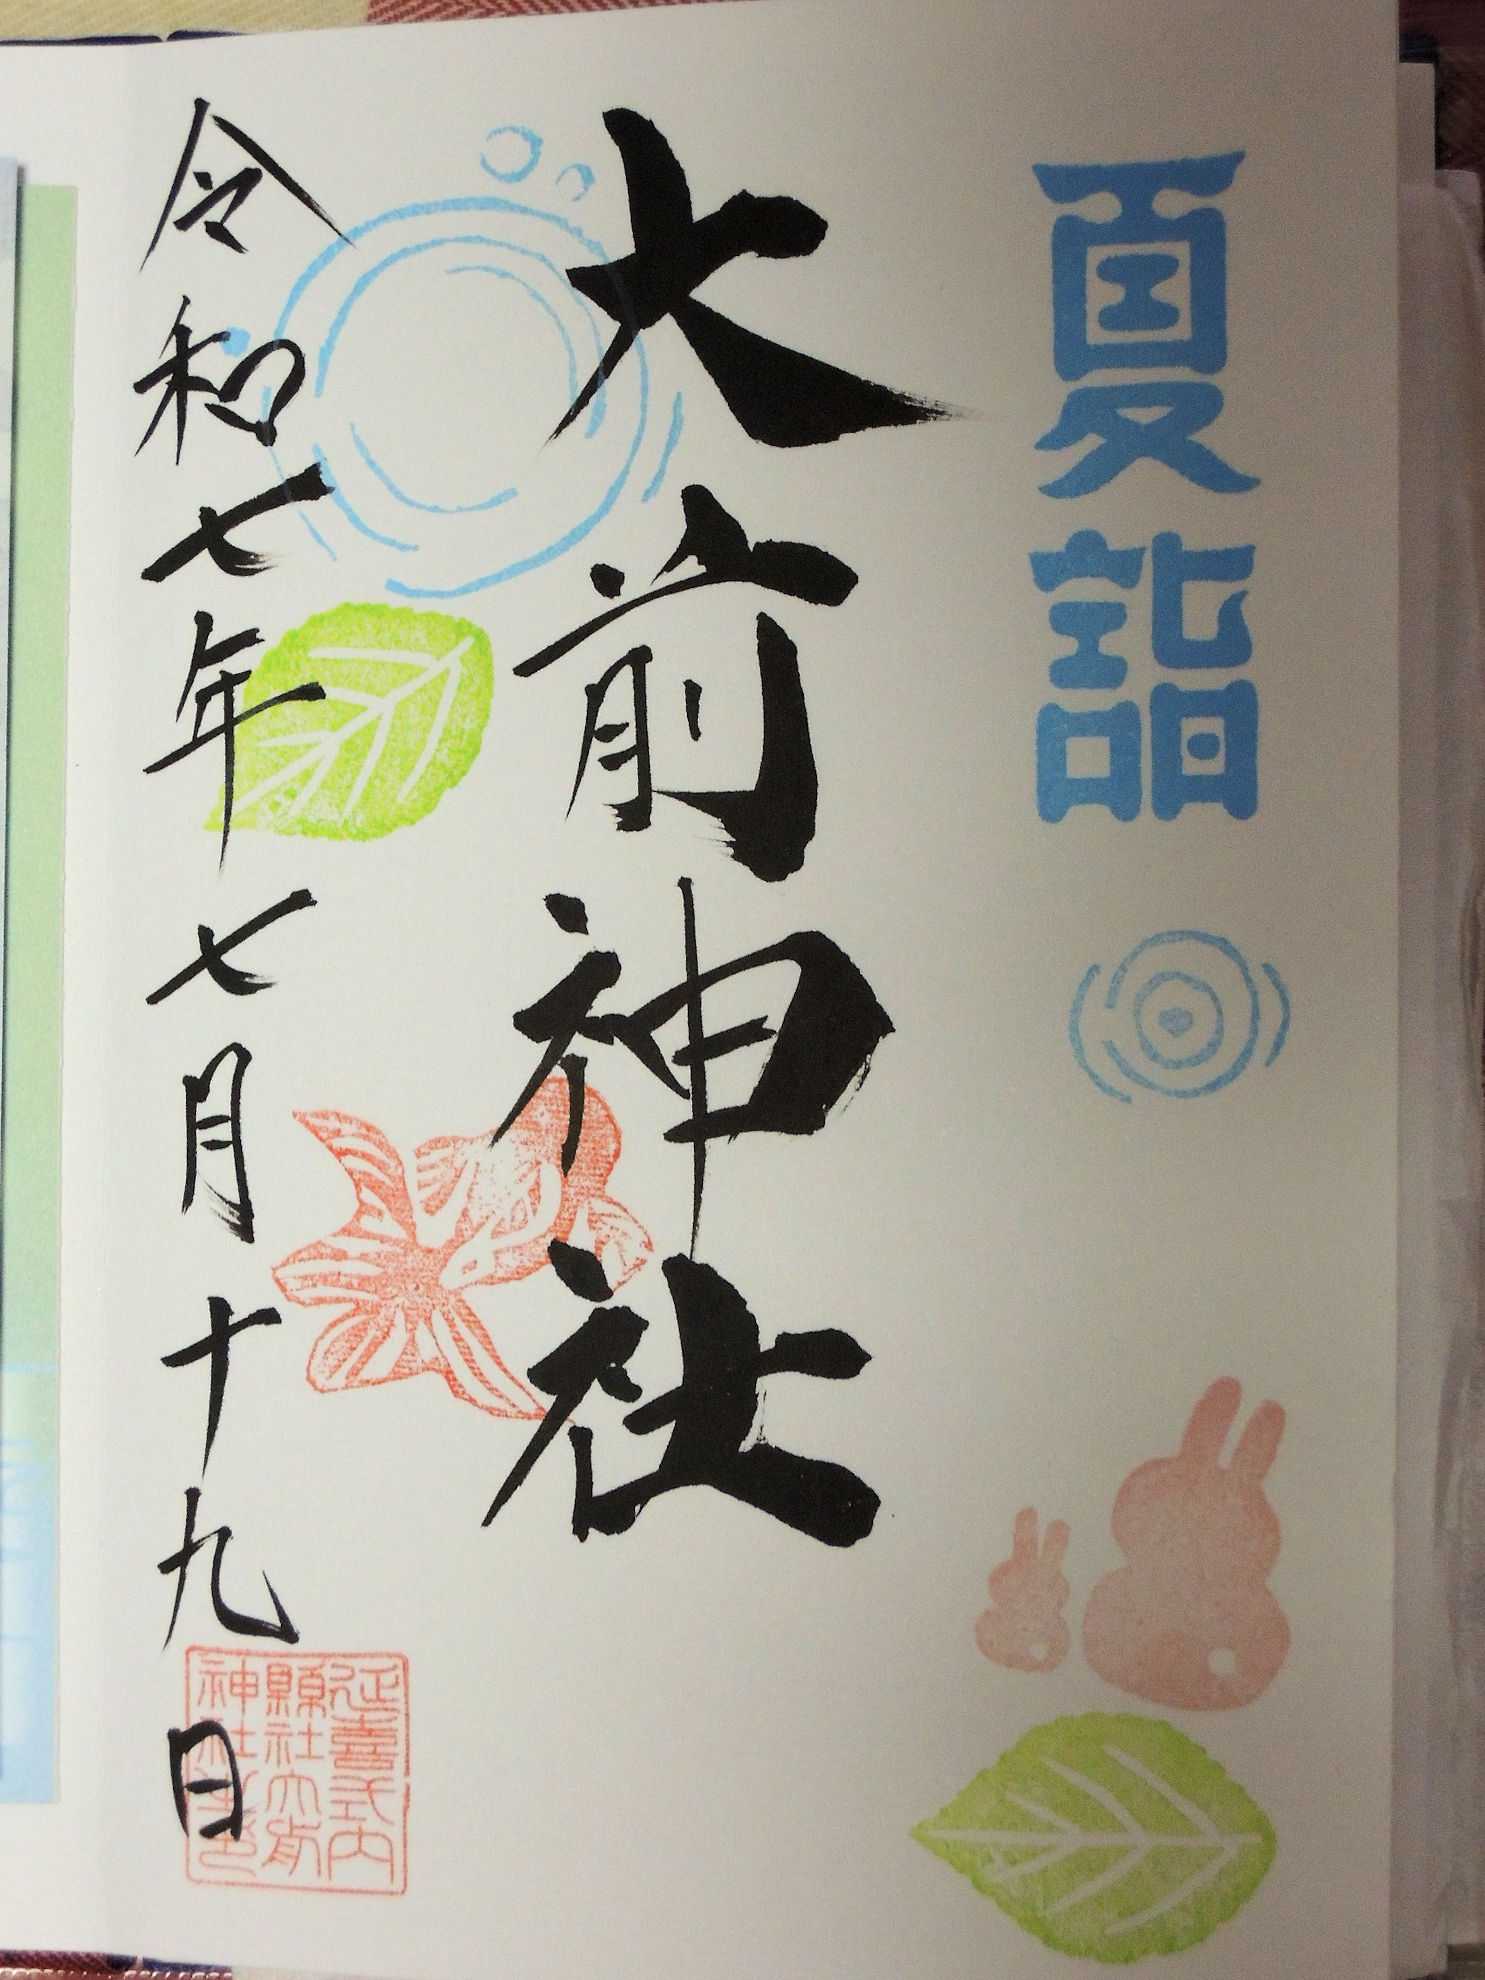 夏詣
大前神社
令和七年七月十九日
延喜式内
縣社大前
神社之印